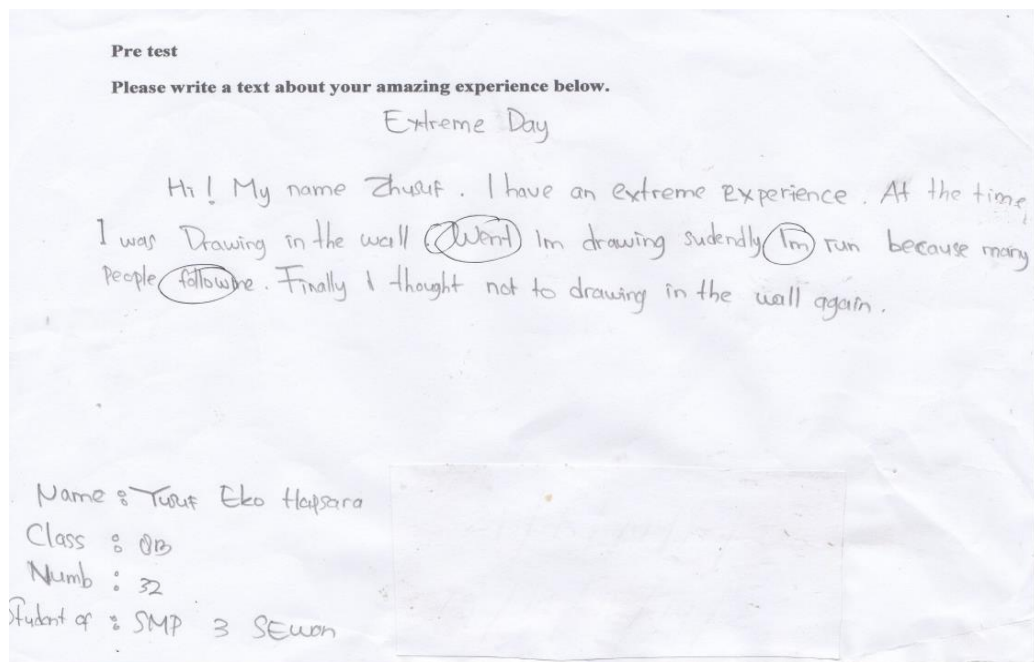 Pre test
Please write a text about your amazing experience below.
Extreme Day
Hi! My name Zhusuf. I have an extreme experience. At the time
I was Drawing in the wall. Went Im drawing sudendly Im run because many
People followme. Finally I thought not to drawing in the wall again.
Name : Yusuf Eko Hapsara
Class : 8B
Numb : 32
Student of : SMP 3 SEwon